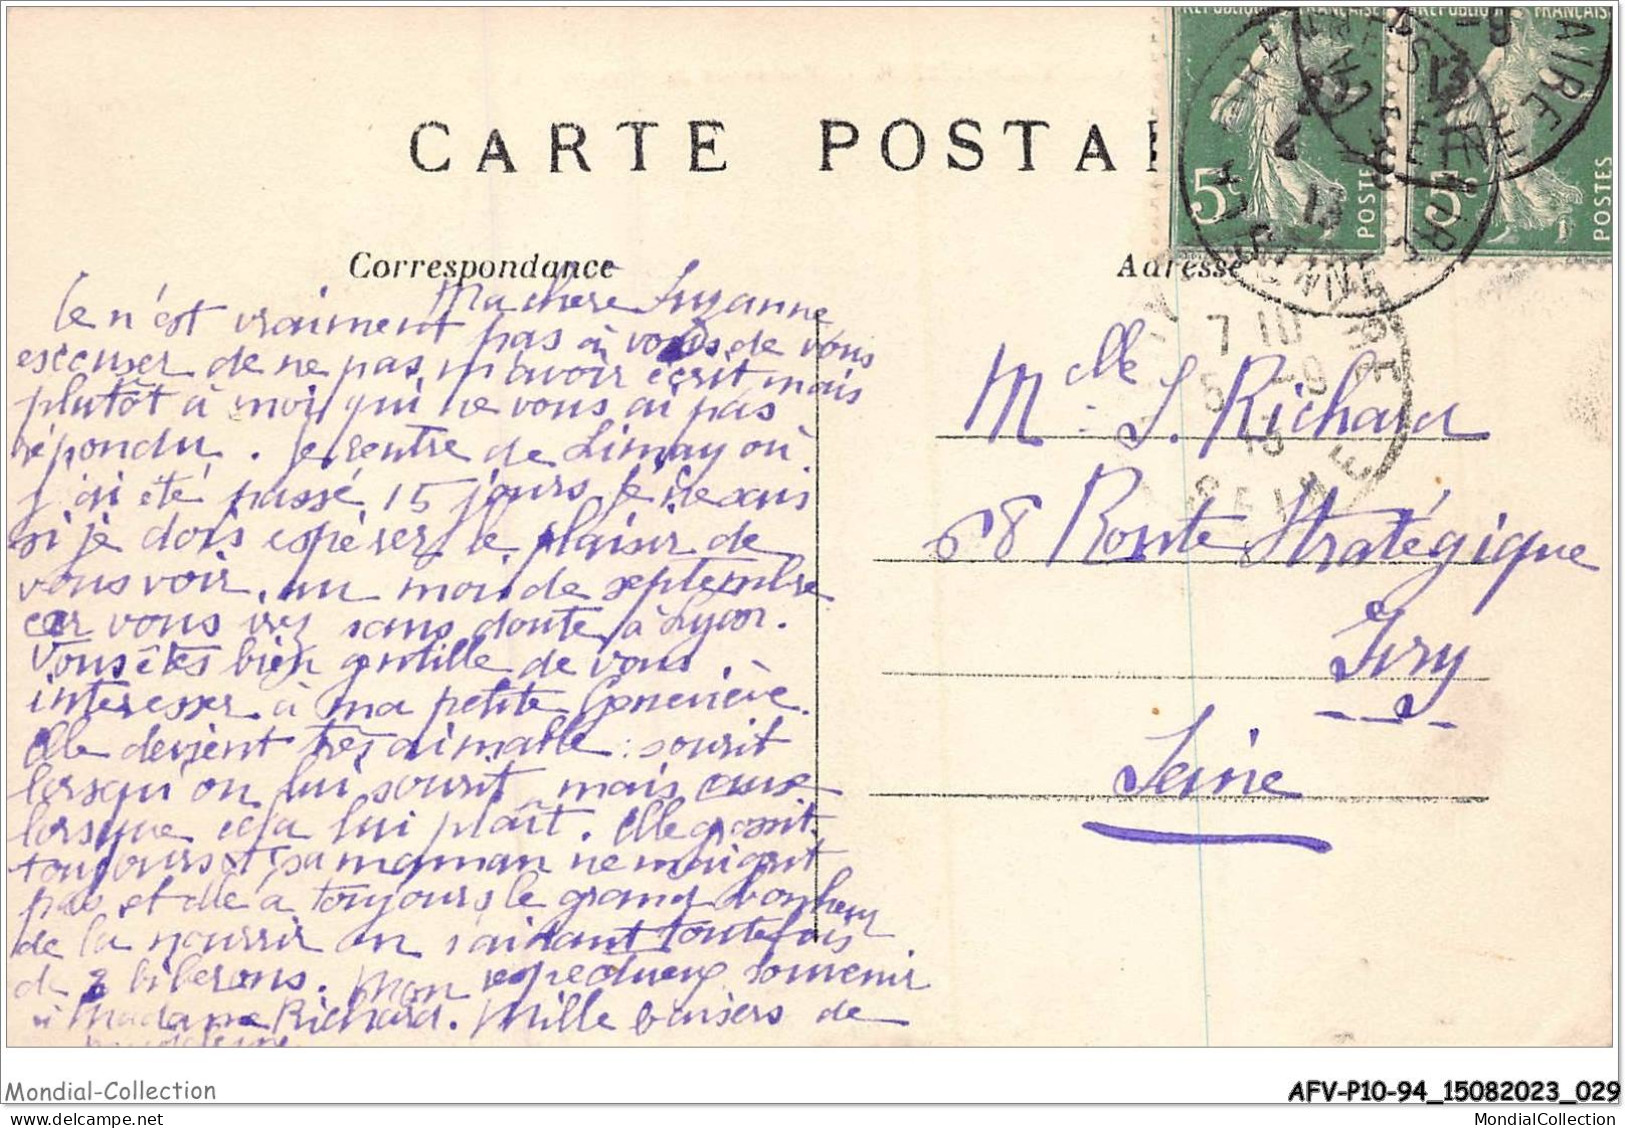 RÉPUBLIQUE FRANÇAISE
5c
POSTES
5c
POSTES
CARTE POSTA
Correspondance
Adresse
Ma chère Suzanne
Ce n'est vraiment pas à vous de vous
escenser de ne pas m'avoir écrit mais
plutôt à moi qui ne vous ai pas
répondu. Je rentre de Limay où
j'ai été passé 15 jours. Je ne sais
si je dois espérer le plaisir de
vous voir, au moi de septembre
car vous irez sans doute à Lyon.
Vous êtes bien gentille de vous
intéresser à ma petite Geneviève.
Elle devient très aimable : sourit
lorsqu'on lui sourit mais cause
lorsque cela lui plaît. Elle grossit
toujours et sa maman ne maigrit
pas, et elle a toujours le grand bonheur
de la nourrir en s'aidant toutefois
de 2 biberons. Mon respectueux souvenir
à Madame Richard. Mille baisers de
Melle S. Richard
68 Route Stratégique
Ivry
Seine
7 10
5 -9
13
SEINE
Mondial-Collection
AFV-P10-94_15082023_029
MondialCollection